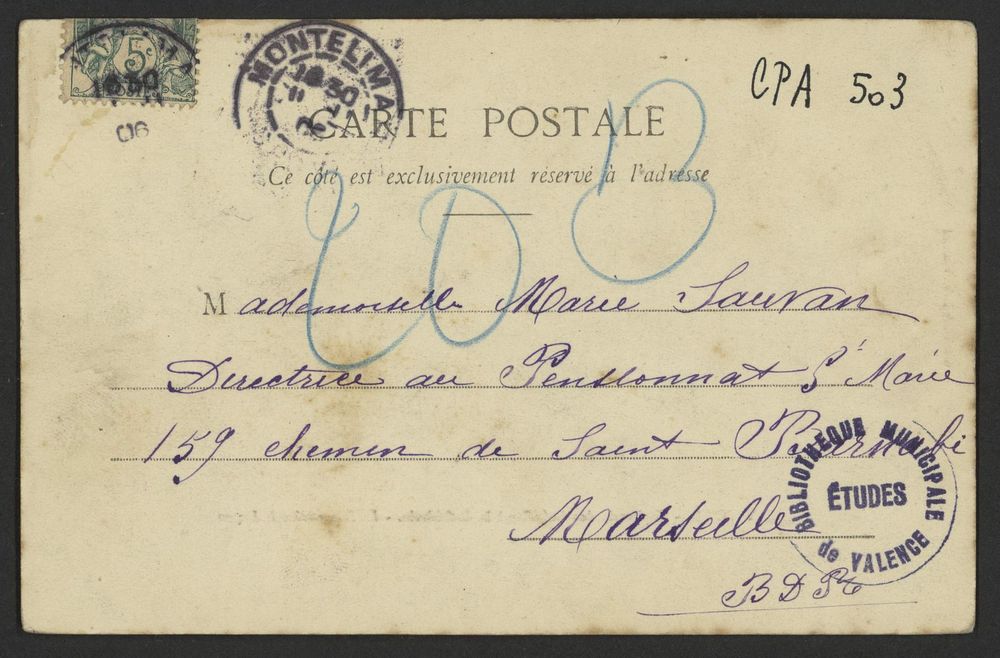 5c
06
MONTELIMA
CPA 503
CARTE POSTALE
Ce côté est exclusivement réservé à l'adresse
20 3
Mademoiselle Marie Sauvan
Directrice au Pensionnat St Marie
159 chemin de Saint Barnabé
Marseille
BDR
BIBLIOTHEQUE MUNICIPALE
ÉTUDES
de VALENCE